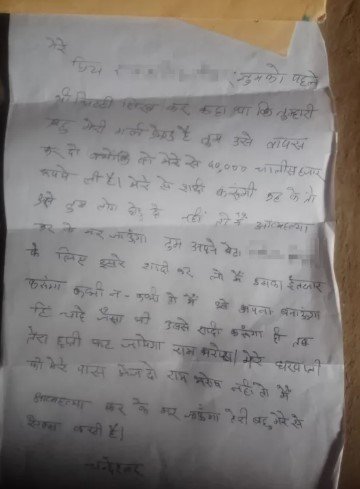 मेरे
प्रिय तुमको पहले
भी चिट्ठी लिख कर कहा था कि तुम्हारी
बहु मेरी है तुम उसे वापस
कर दो क्योंकि वो मेरे से 40,000 चालीस हजार
रुपये ली है। मेरे से शादी करूंगी कह के तो
उसे तुम लोग छोड़ दो नहीं तो मैं आत्महत्या
कर के मर जाऊंगा तुम अपने बेटा
के लिए दूसरे शादी कर लो मैं उसका इंतजार
करूंगा कभी न कभी तो मैं उसे अपना बनाऊंगा
ही चाहे जो उससे शादी करूंगा ही तब
तेरा छाती फट जायेगा राम भरोस। मेरे घरवाली
को मेरे पास भेज दो राम भरोस नहीं तो मैं
आत्महत्या कर के मर जाऊंगा तेरी बहु मेरे से
करती है।